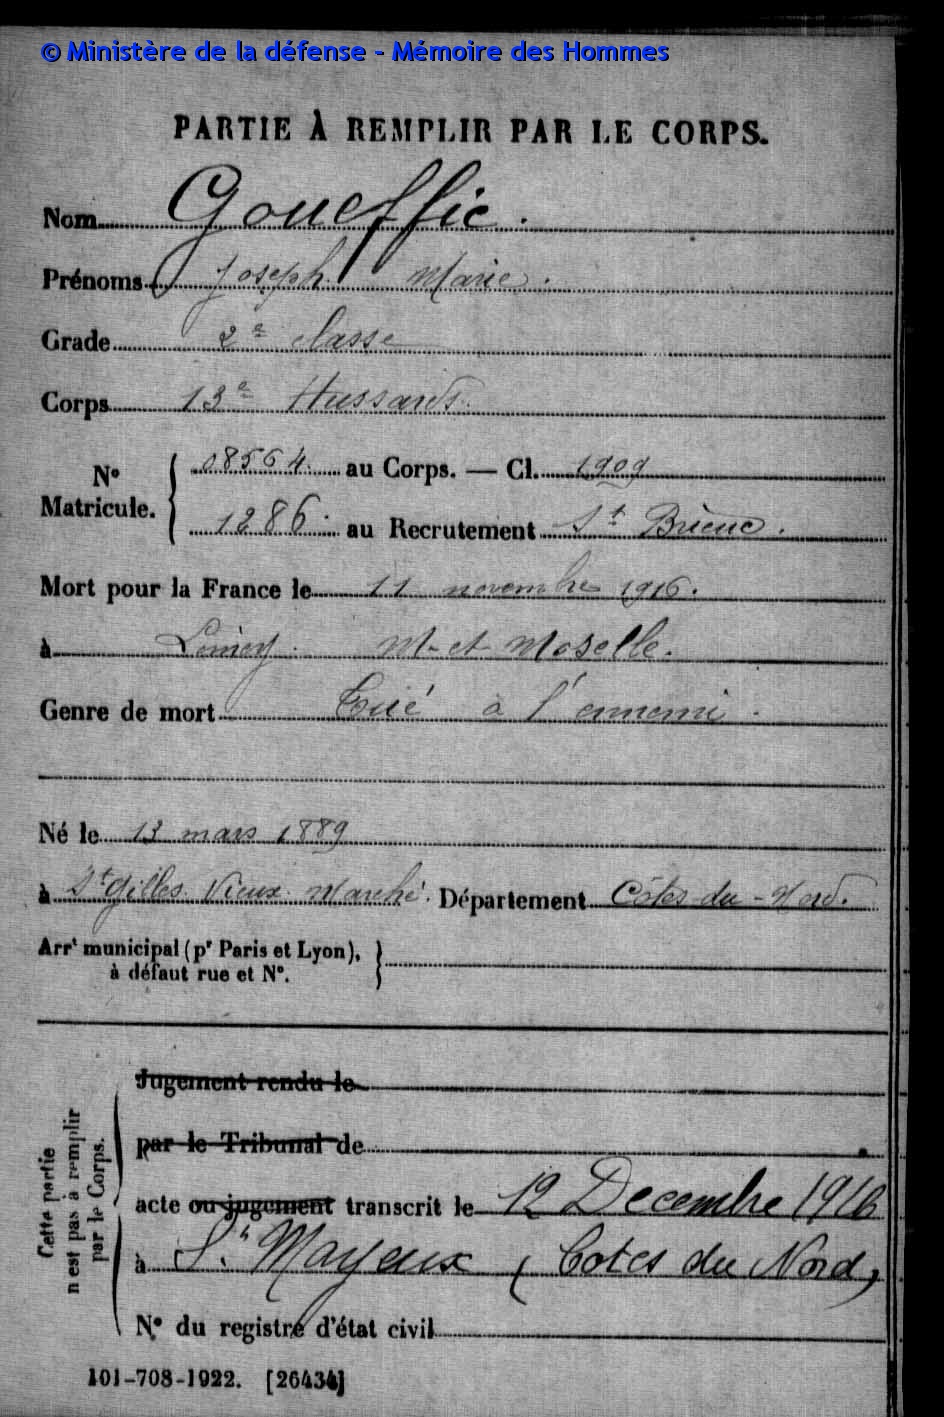 © Ministère de la défense - Mémoire des Hommes
PARTIE À REMPLIR PAR LE CORPS.
Nom Goueffic.
Prénoms Joseph Marie.
Grade 2e classe
Corps 13e Hussards.
No Matricule. { 08564 au Corps. — Cl. 1909
1286. au Recrutement St Brieuc.
Mort pour la France le 11 novembre 1916.
à Limey. M-et-Moselle.
Genre de mort Tué à l'ennemi.
Né le 13 mars 1889
à St Gilles Vieux Marché. Département Côtes-du-Nord.
Arrt municipal (pr Paris et Lyon), }
à défaut rue et No.
Cette partie
n'est pas à remplir
par le Corps.
Jugement rendu le
par le Tribunal de
acte ou jugement transcrit le 12 Decembre 1916
à St. Mayeux (Cotes du Nord)
No du registre d'état civil
101-708-1922. [26434]